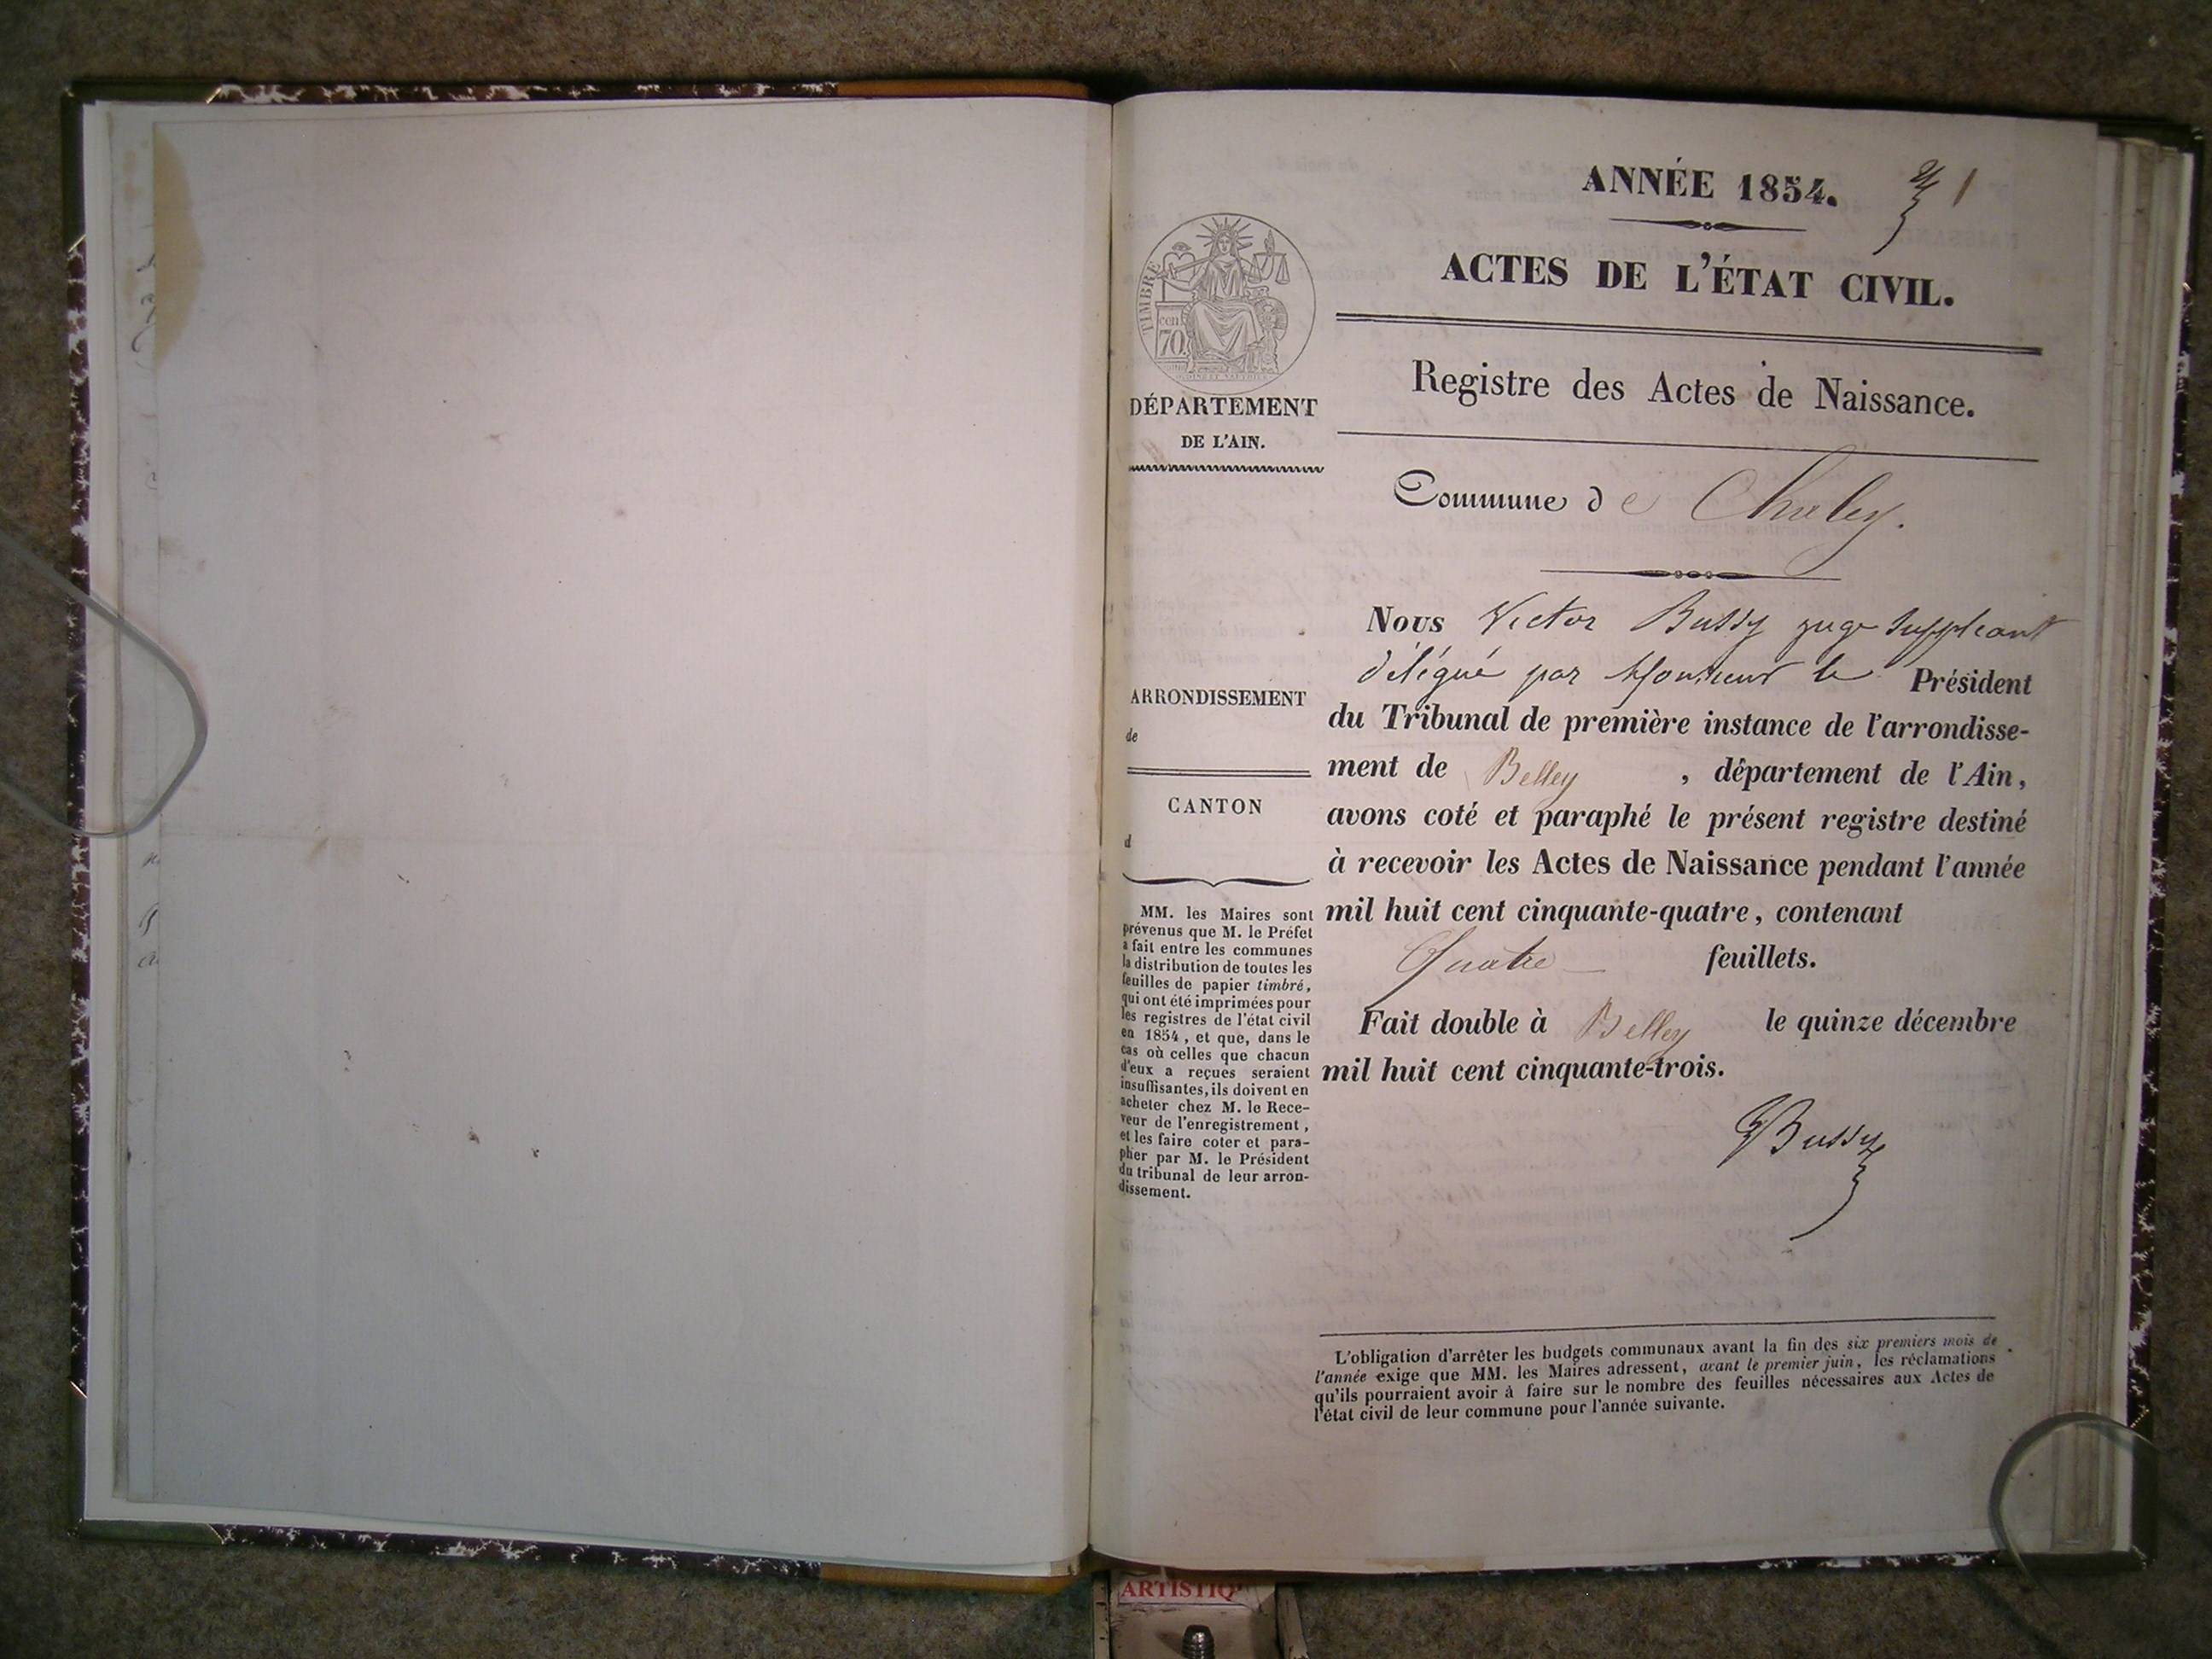 ANNÉE 1854.
1
ACTES DE L'ÉTAT CIVIL.
TIMBRE
cen
70.
DÉPARTEMENT
DE L'AIN.
Registre des Actes de Naissance.
Commune de Chaley.
ARRONDISSEMENT
de
CANTON
d
MM. les Maires sont
prévenus que M. le Préfet
a fait entre les communes
la distribution de toutes les
feuilles de papier timbré,
qui ont été imprimées pour
les registres de l'état civil
en 1854, et que, dans le
cas où celles que chacun
d'eux a reçues seraient
insuffisantes, ils doivent en
acheter chez M. le Rece-
veur de l'enregistrement,
et les faire coter et para-
pher par M. le Président
du tribunal de leur arron-
dissement.
Nous Victor Bussy juge suppléant
délégué par Monsieur le Président
du Tribunal de première instance de l'arrondisse-
ment de Belley, département de l'Ain,
avons coté et paraphé le présent registre destiné
à recevoir les Actes de Naissance pendant l'année
mil huit cent cinquante-quatre, contenant
Quatre feuillets.
Fait double à Belley le quinze décembre
mil huit cent cinquante-trois.
Bussy
L'obligation d'arrêter les budgets communaux avant la fin des six premiers mois de
l'année exige que MM. les Maires adressent, avant le premier juin, les réclamations
qu'ils pourraient avoir à faire sur le nombre des feuilles nécessaires aux Actes de
l'état civil de leur commune pour l'année suivante.
ARTISTIQ